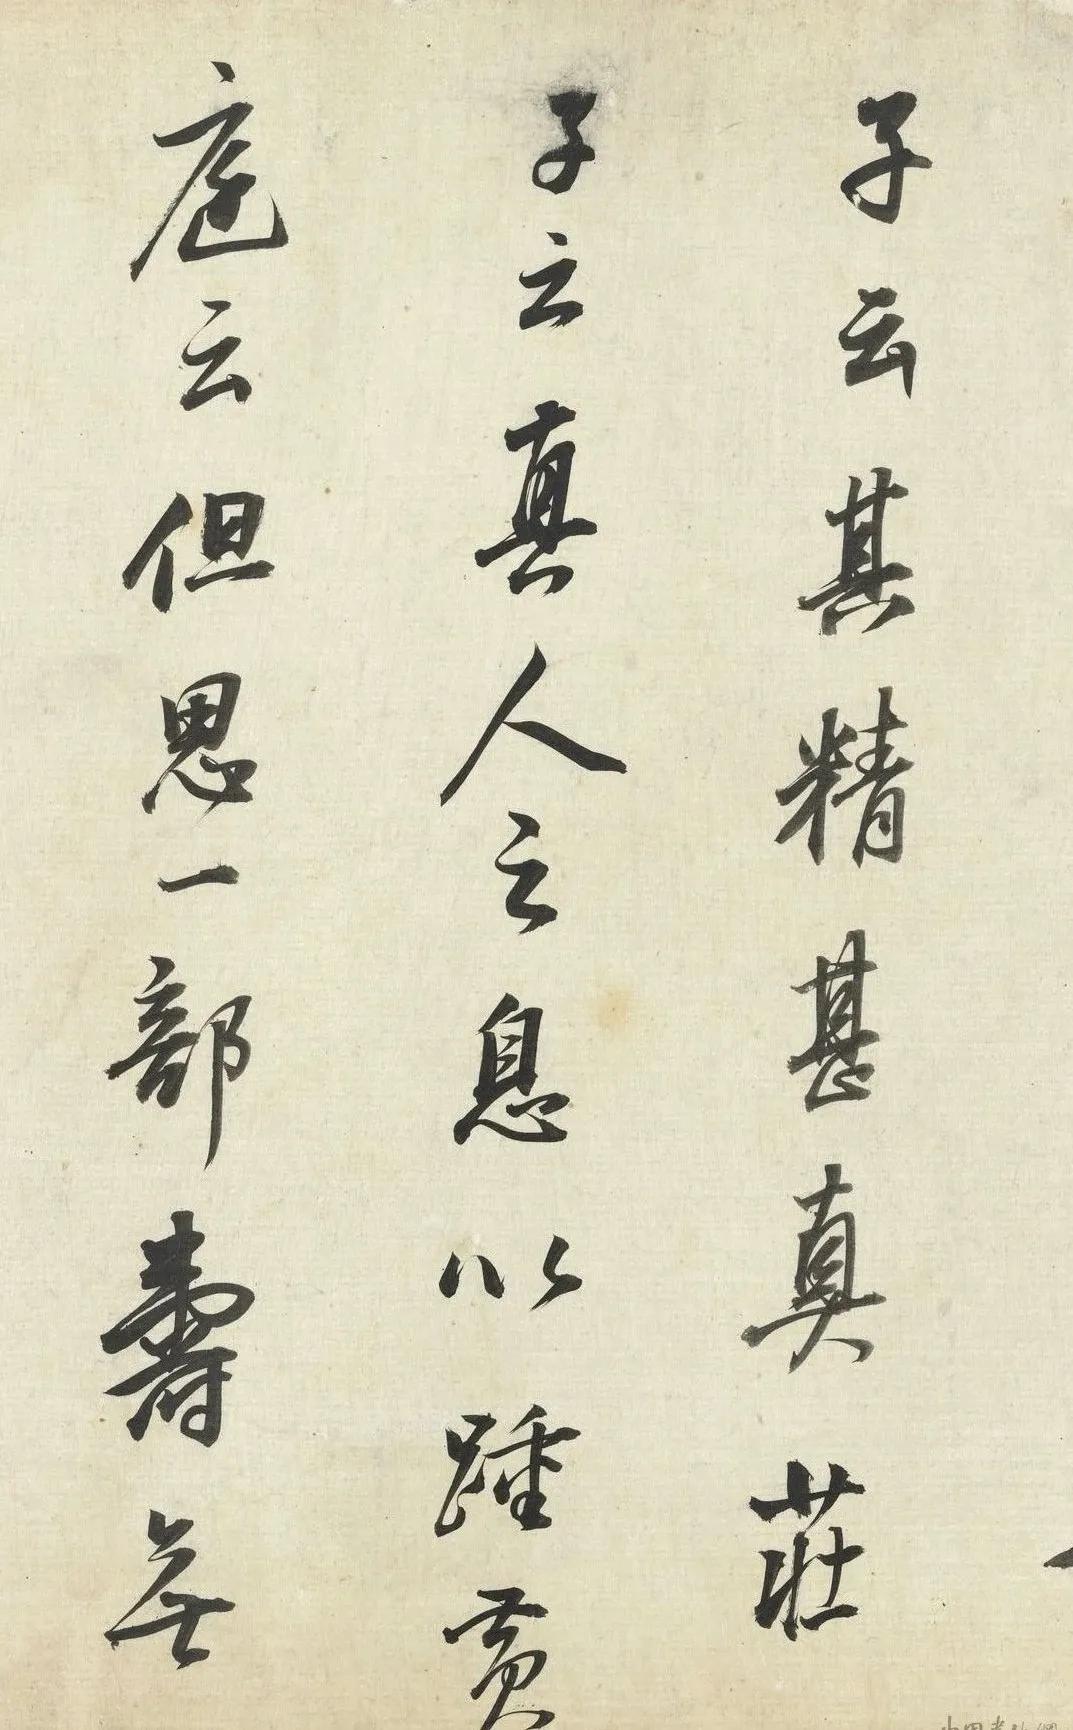 子云其精甚真莊
子云真人之息以踵黃
庭云但思一部壽無